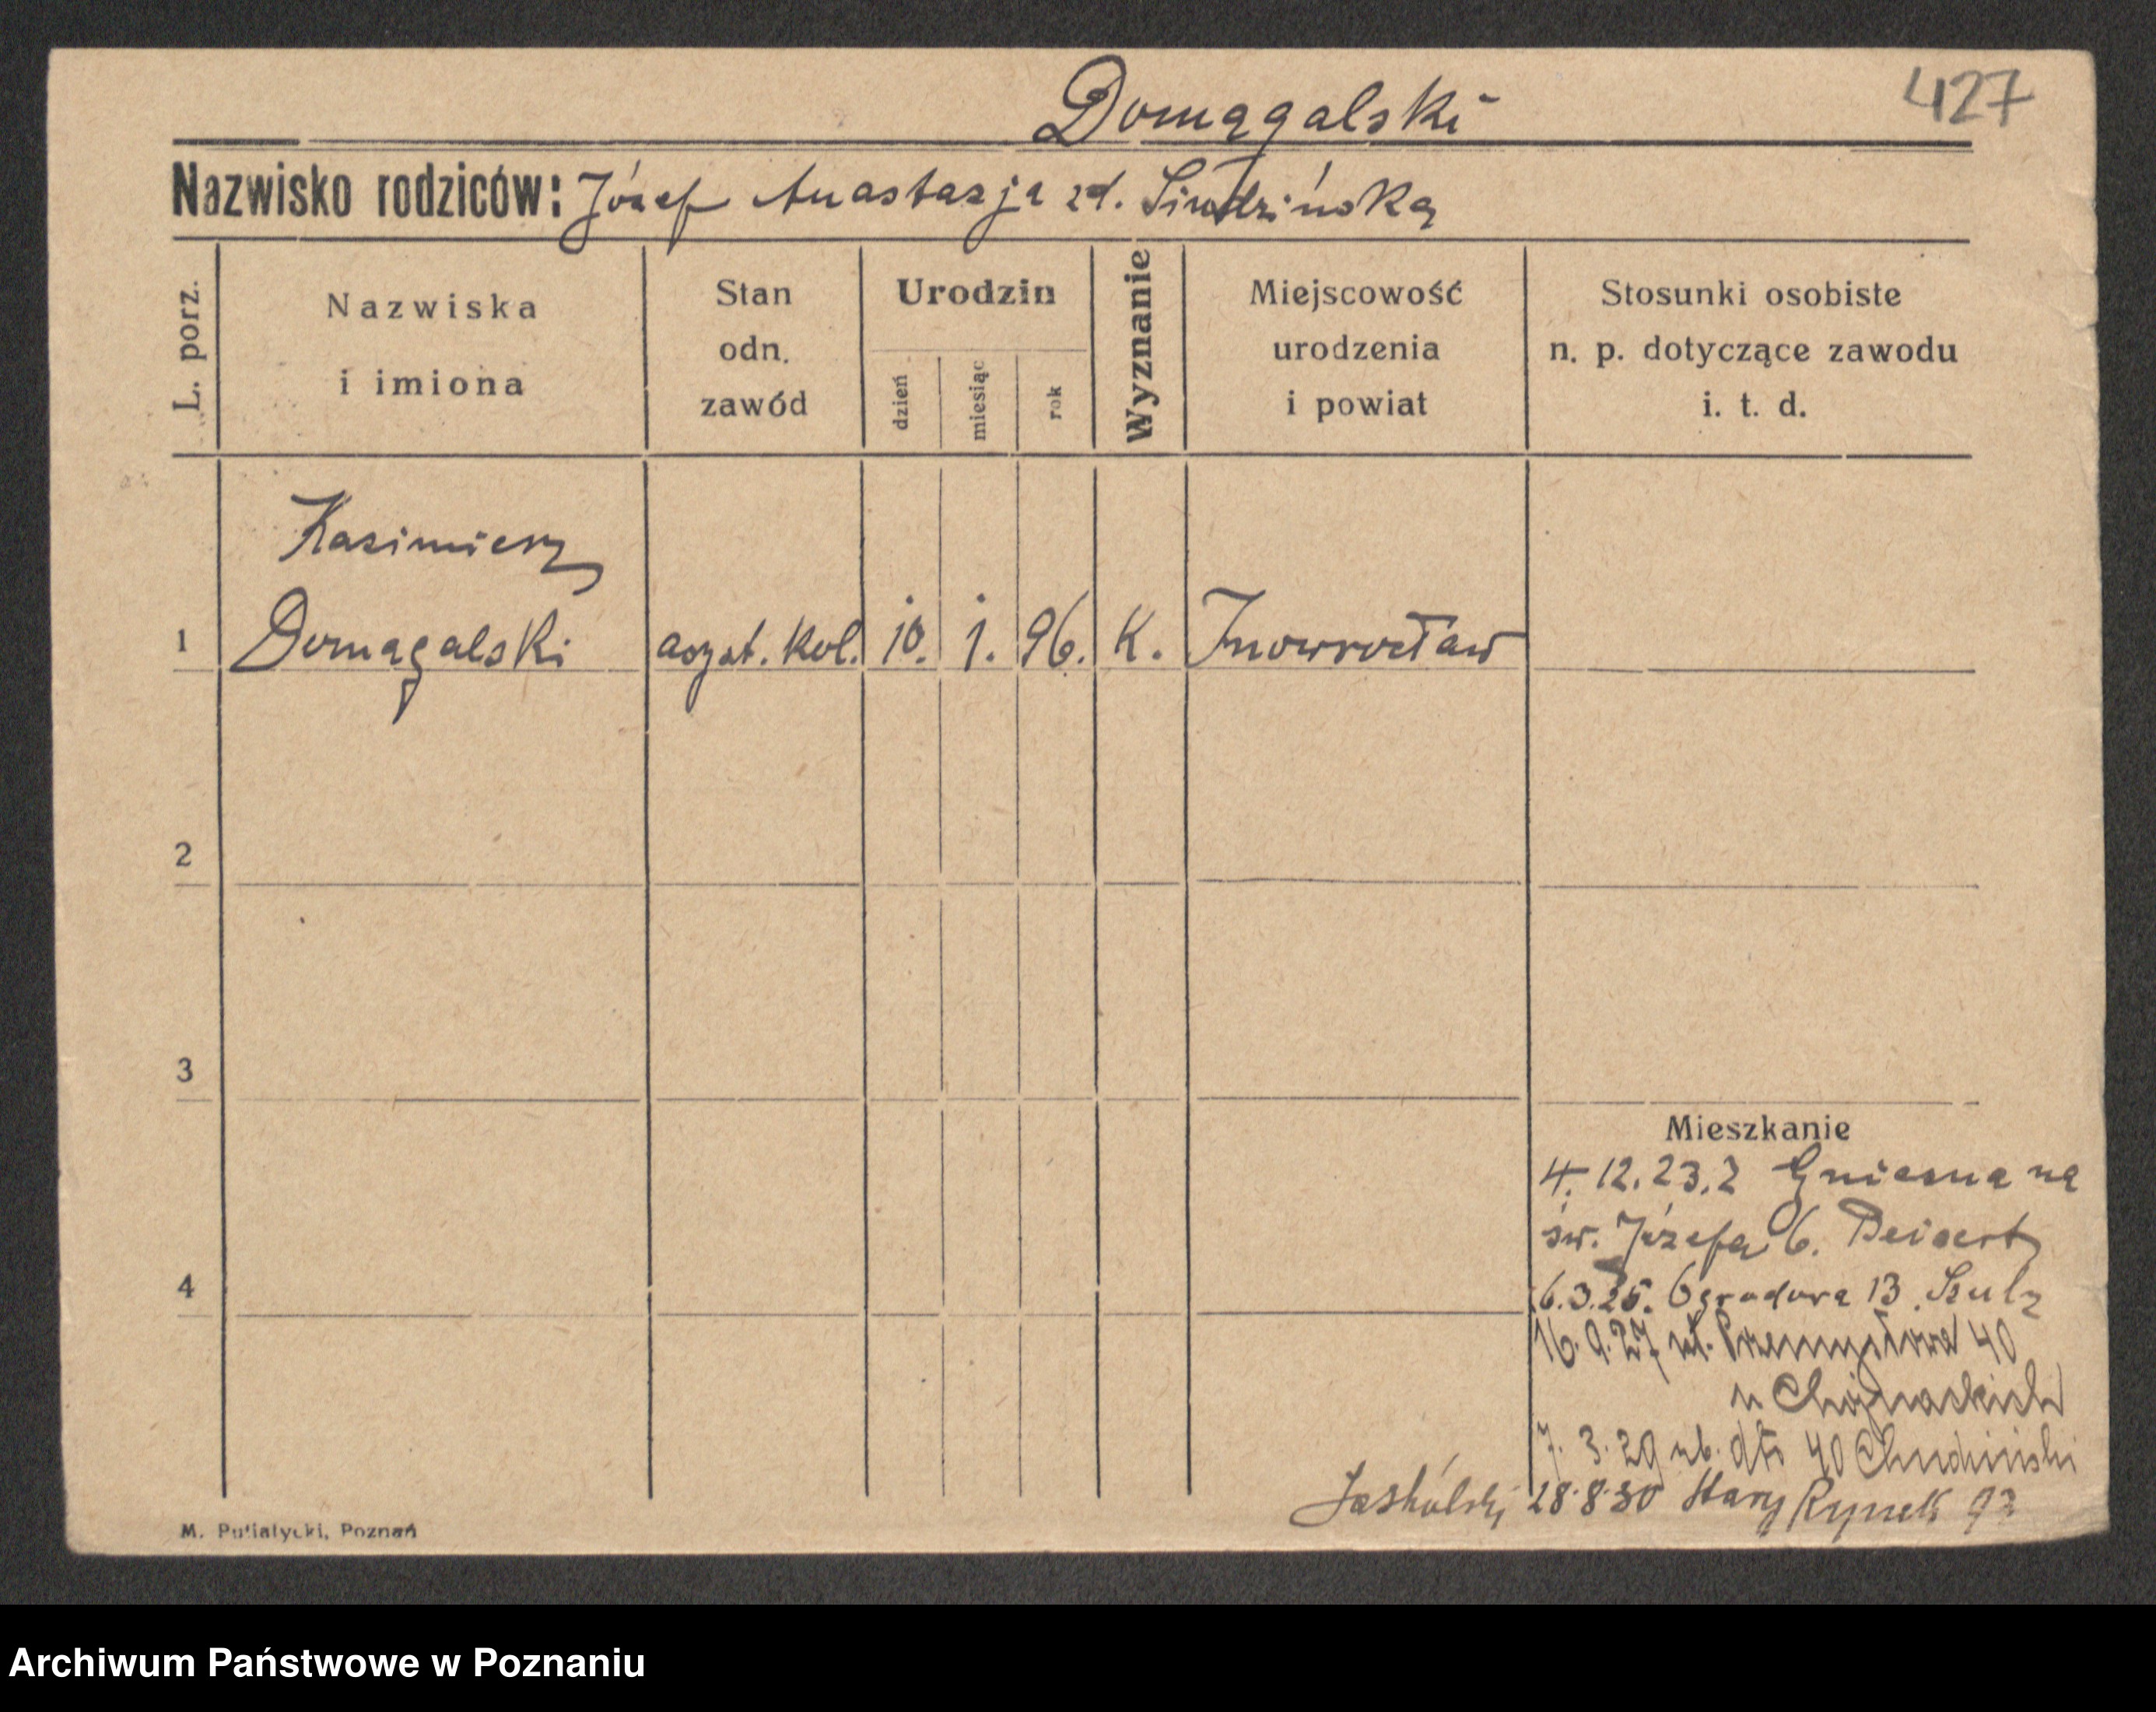 Domagalski
427
Nazwisko rodziców: Józef Anastazja zd. Siudzińska
L. porz.
Nazwiska i imiona
Stan odn. zawód
Urodzin
dzień
miesiąc
rok
Wyznanie
Miejscowość urodzenia i powiat
Stosunki osobiste n. p. dotyczące zawodu i. t. d.
Kazimierz
1 Domagalski asyst. kol. 10. 1. 96. K. Inowrocław
2
3
Mieszkanie
4. 12. 23. z Gniezna na
św. Józefa 6. Deisert
4
6.3.25. Ogrodowa 13. Szulz
16.9.27 ul. Przemysłowa 40
u Chojnackich
7. 3. 29 ub. dto 40 Chudziński
Jaskólski 28.8.30 Stary Rynek 93
M. Putiatycki, Poznań
Archiwum Państwowe w Poznaniu